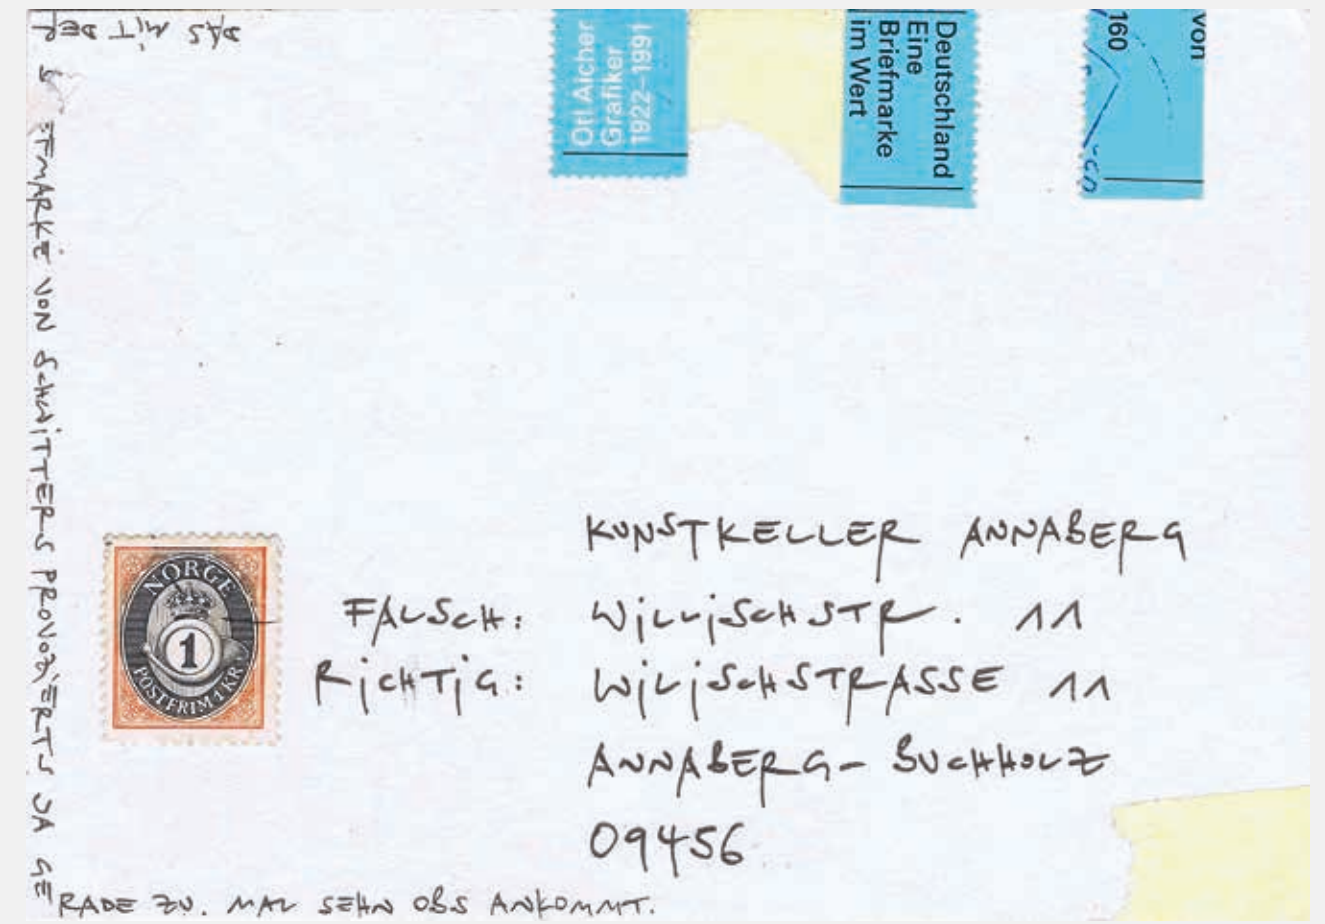 DAS MIT DER
STMARKE VON SCHWITTERS PROVOZIERTS JA GE
RADE ZU. MAL SEHN OBS ANKOMMT.
Otl Aicher
Grafiker
1922–1991
Deutschland
Eine
Briefmarke
im Wert
von
160
NORGE
1
POSTFRIM 1 KR
KUNSTKELLER ANNABERG
FALSCH: WILLISCHSTR. 11
RICHTIG: WILISCHSTRASSE 11
ANNABERG-BUCHHOLZ
09456